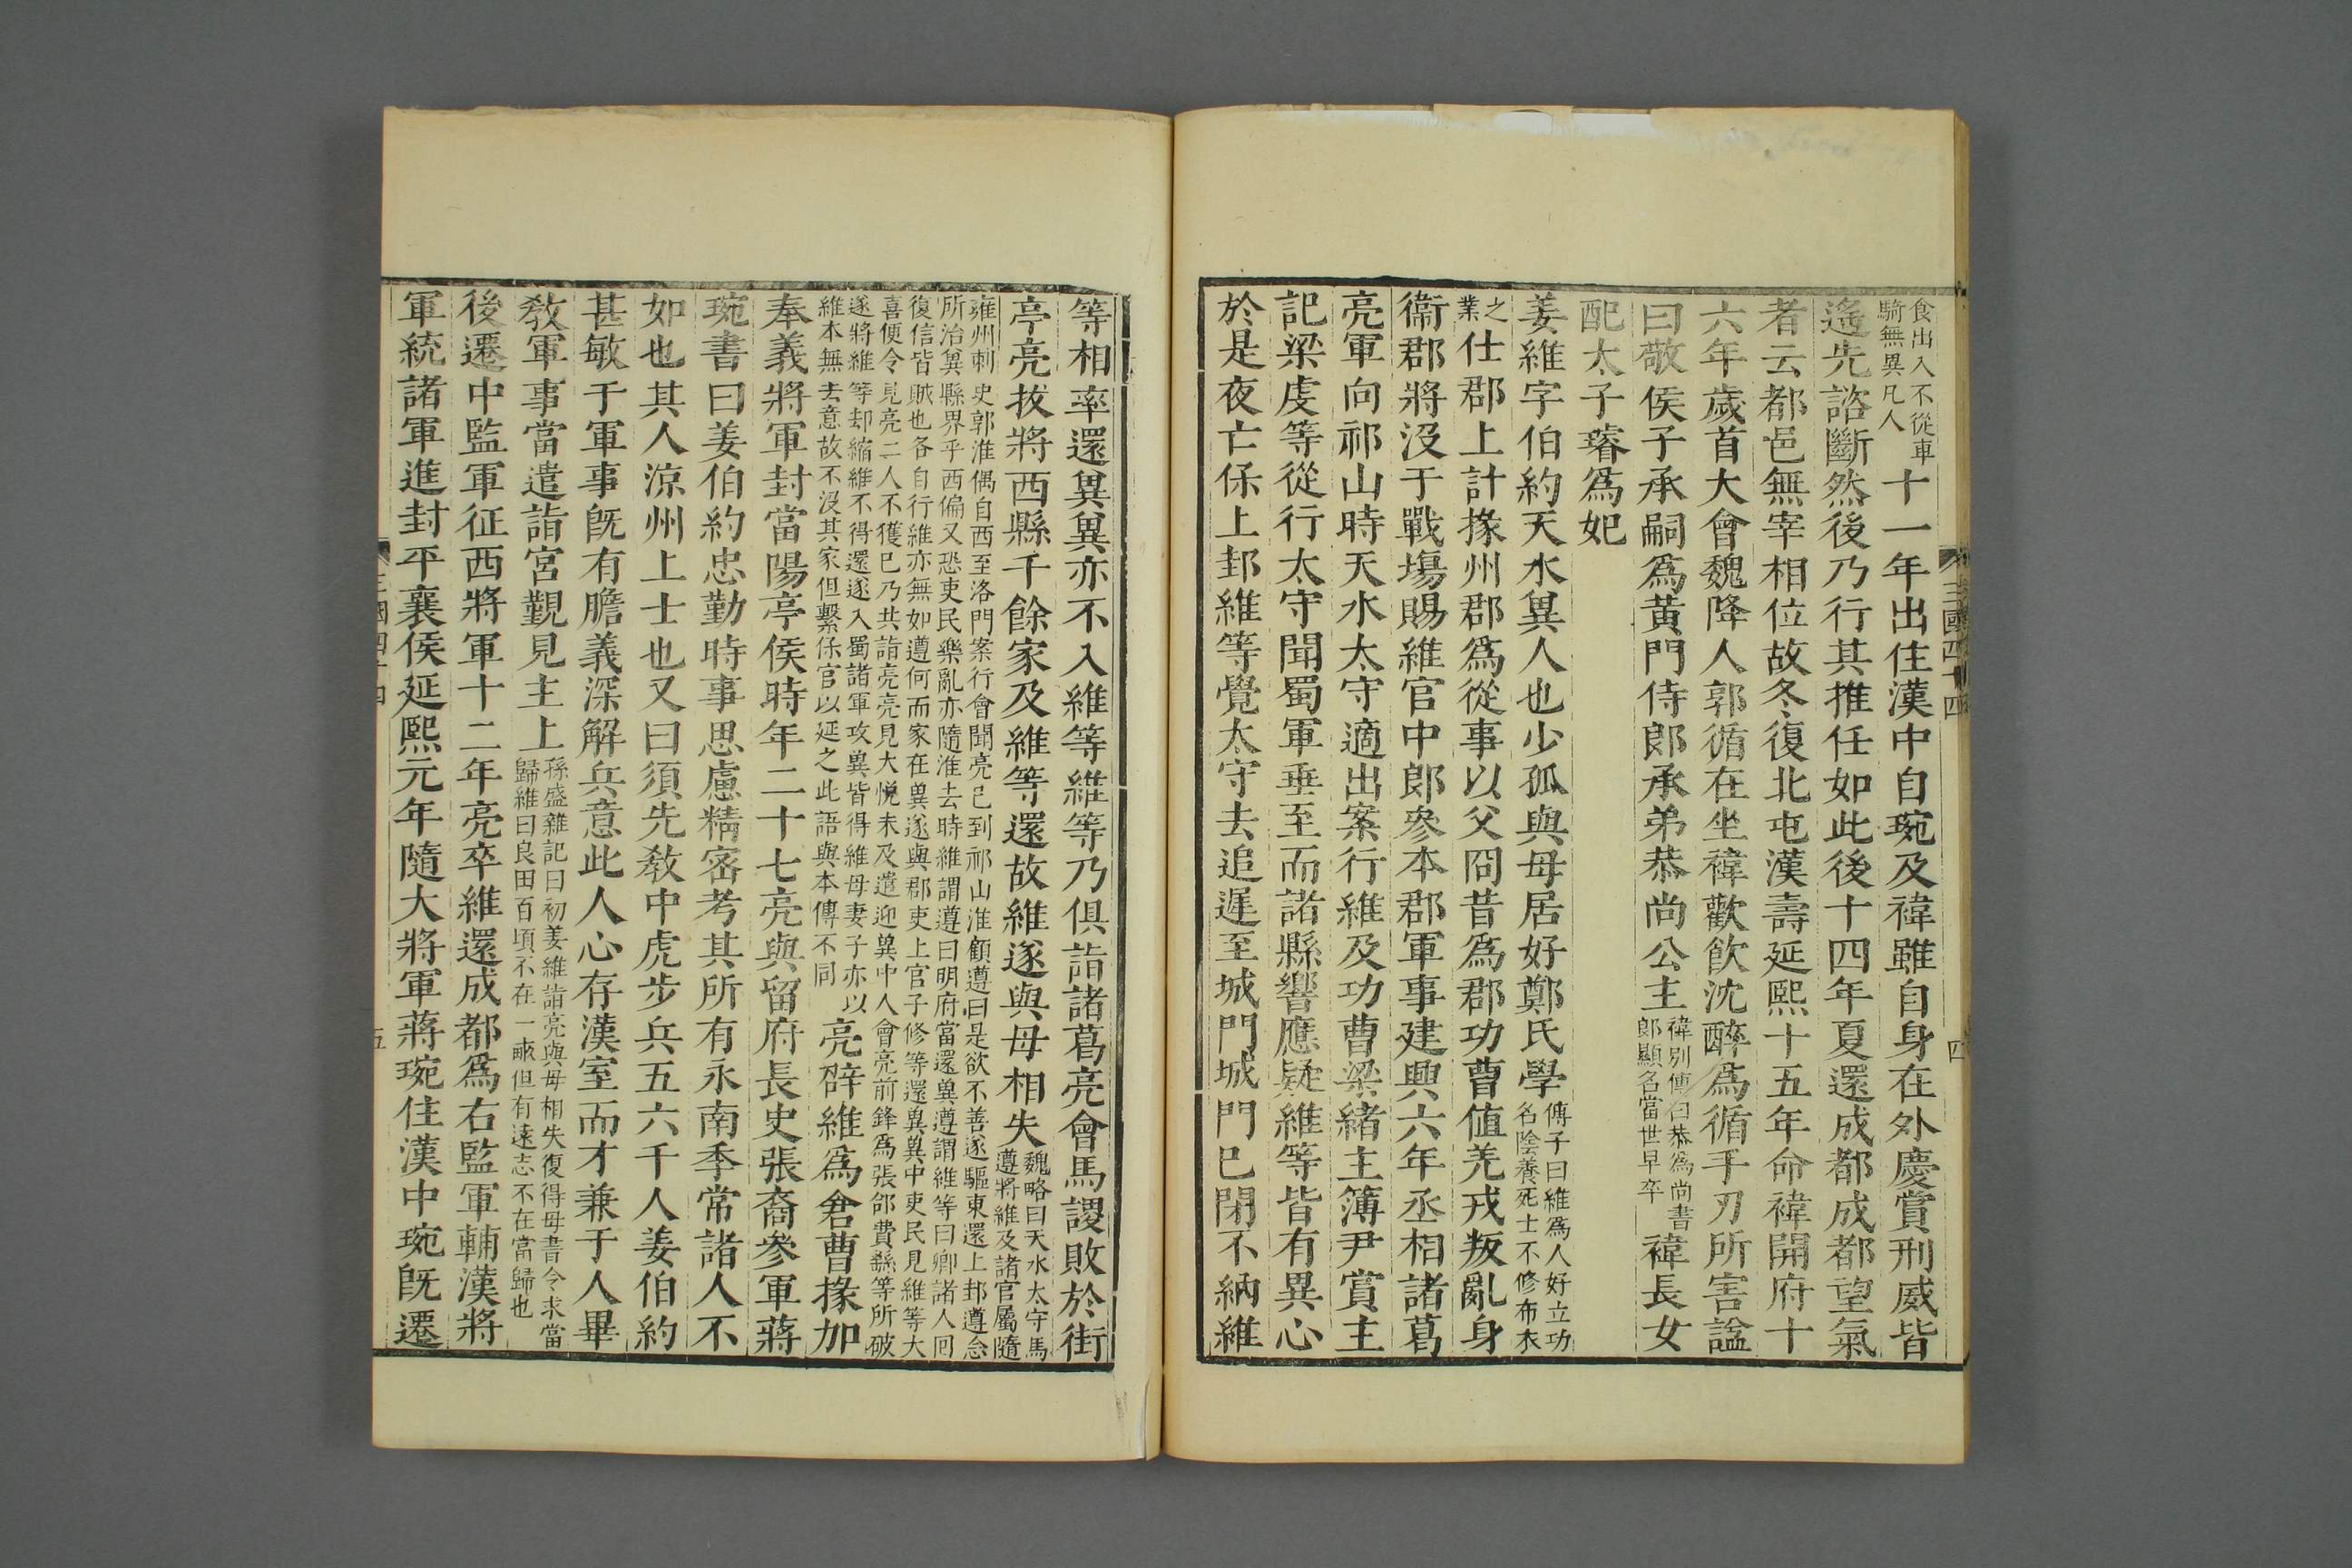 三國四十四 四
食出入不從車騎無異凡人十一年出住漢中自琬及禕雖自身在外慶賞刑威皆
遙先諮斷然後乃行其推任如此後十四年夏還成都成都望氣
者云都邑無宰相位故冬復北屯漢壽延熙十五年命禕開府十
六年歲首大會魏降人郭循在坐禕歡飲沈醉爲循手刃所害諡
曰敬侯子承嗣爲黃門侍郎承弟恭尚公主禕別傳曰恭爲尚書郎顯名當世早卒禕長女
配太子璿爲妃
姜維字伯約天水兾人也少孤與母居好鄭氏學傅子曰維爲人好立功名陰養死士不修布衣
之業仕郡上計掾州郡爲從事以父冏昔爲郡功曹值羌戎叛亂身
衞郡將沒于戰場賜維官中郎參本郡軍事建興六年丞相諸葛
亮軍向祁山時天水太守適出案行維及功曹梁緒主簿尹賞主
記梁虔等從行太守聞蜀軍垂至而諸縣響應疑維等皆有異心
於是夜亡保上邽維等覺太守去追遲至城門城門已閉不納維
等相率還兾兾亦不入維等維等乃俱詣諸葛亮會馬謖敗於街
亭亮拔將西縣千餘家及維等還故維遂與母相失魏略曰天水太守馬遵將維及諸官屬隨
雍州刺史郭淮偶自西至洛門案行會聞亮已到祁山淮顧遵曰是欲不善遂驅東還上邽遵念
所治兾縣界乎西偏又恐吏民樂亂亦隨淮去時維謂遵曰明府當還兾遵謂維等曰卿諸人囘
復信皆賊也各自行維亦無如遵何而家在兾遂與郡吏上官子修等還兾兾中吏民見維等大
喜便令見亮二人不獲已乃共詣亮亮見大悅未及遣迎兾中人會亮前鋒爲張郃費繇等所破
遂將維等却縮維不得還遂入蜀諸軍攻兾皆得維母妻子亦以
維本無去意故不沒其家但繫保官以延之此語與本傳不同亮辟維爲倉曹掾加
奉義將軍封當陽亭侯時年二十七亮與留府長史張裔參軍蔣
琬書曰姜伯約忠勤時事思慮精密考其所有永南季常諸人不
如也其人涼州上士也又曰須先教中虎步兵五六千人姜伯約
甚敏于軍事旣有膽義深解兵意此人心存漢室而才兼于人畢
教軍事當遣詣宮覲見主上孫盛雜記曰初姜維詣亮與母相失復得母書令求當歸維曰良田百頃不在一畝但有遠志不在當歸也
後遷中監軍征西將軍十二年亮卒維還成都爲右監軍輔漢將
軍統諸軍進封平襄侯延熙元年隨大將軍蔣琬住漢中琬旣遷
三國四十四 五